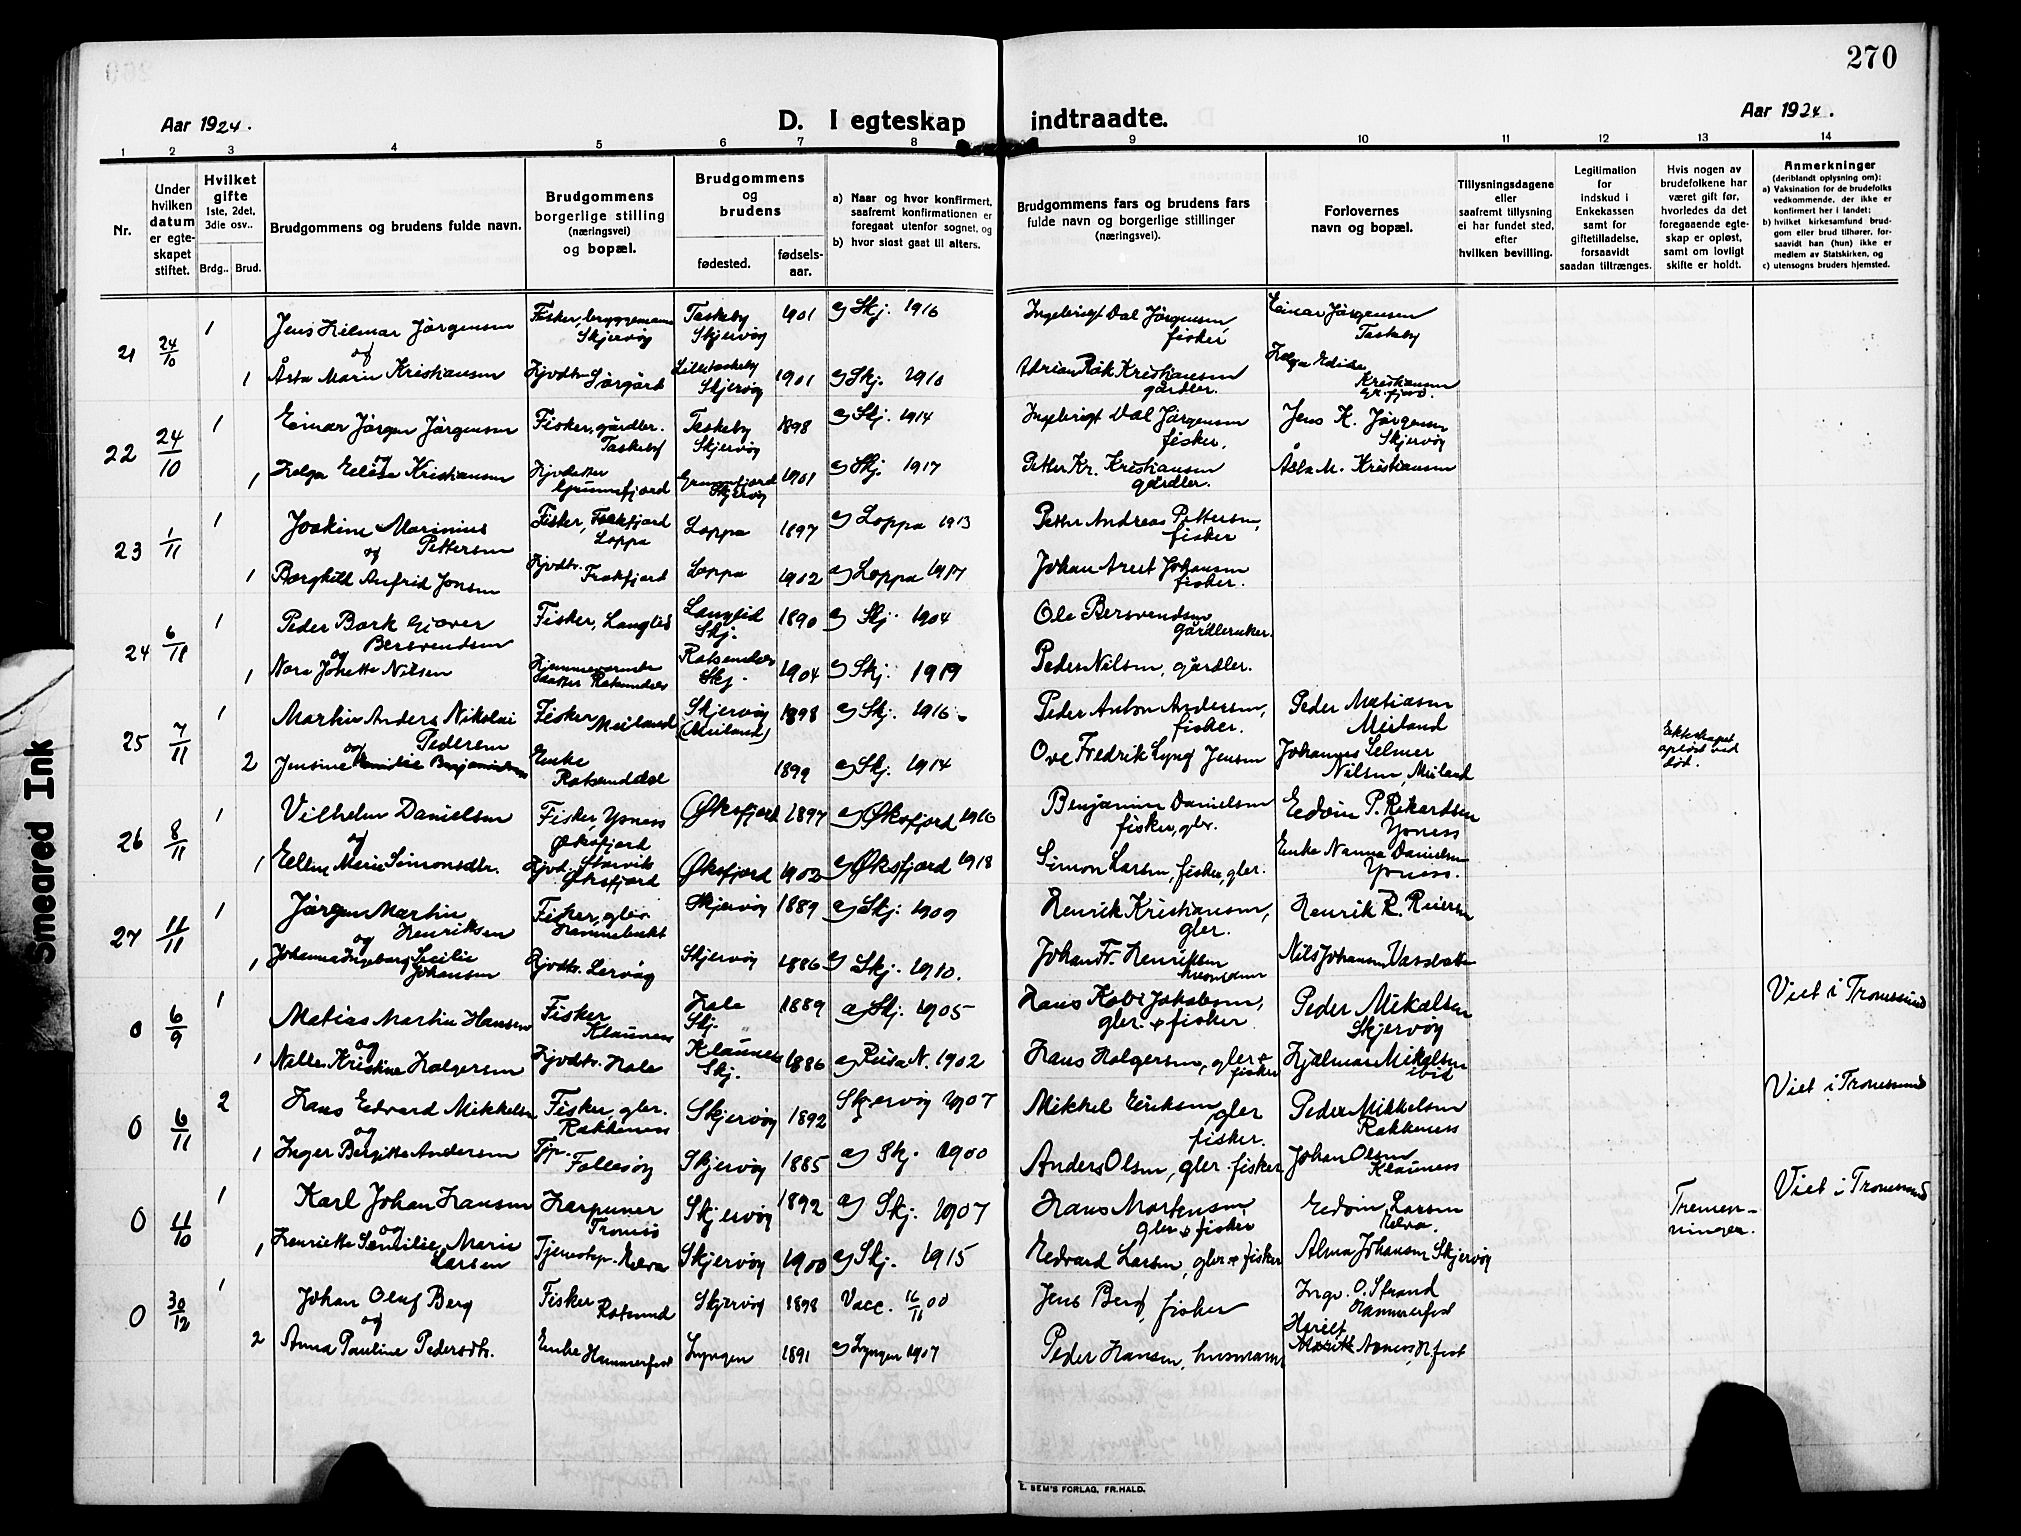 270
Aar 1924.
D. I egteskap indtraadte.
Aar 1924.
1 2 3 4 5 6 7 8 9 10 11 12 13 14
Nr.
Under hvilken datum er egteskapet stiftet.
Hvilket gifte 1ste, 2det, 3die osv..
Brdg.. Brud.
Brudgommens og brudens fulde navn.
Brudgommens borgerlige stilling (næringsvei) og bopæl.
Brudgommens og brudens
fødested.
fødsels-aar.
a) Naar og hvor konfirmert, saafremt konfirmationen er foregaat utenfor sognet, og
b) hvor sidst gaat til alters.
Brudgommens fars og brudens fars fulde navn og borgerlige stillinger (næringsvei).
Forlovernes navn og bopæl.
Tillysningsdagene eller saafremt tillysning ei har fundet sted, efter hvilken bevilling.
Legitimation for indskud i Enkekassen samt for giftetilladelse, forsaavidt saadan tiltrænges.
Hvis nogen av brudefolkene har været gift før, hvorledes da det foregaaende egteskap er opløst, samt om lovligt skifte er holdt.
Anmerkninger (deriblandt oplysning om):
a) Vaksination for de brudefolks vedkommende, der ikke er konfirmert her i landet;
b) hvilket kirkesamfund brudgom eller brud tilhører, forsaavidt han (hun) ikke er medlem av Statskirken, og
c) utensogns bruders hjemsted.
21 24/10 1 Jens Hilmar Jörgensen Fisker, bryggemann Skjervöy Taskeby Skjervöy 1901 a) Skj. 1916 Ingebrigt Dal Jörgensen fisker Einar Jörgensen Taskeby
og
1 Åsta Marie Kristiansen Hjvdtr. Sörgård Lilletaskeby Skjervöy 1901 a) Skj. 1916 Adrian Röik Kristiansen gårdbr. Helga Edise Kristiansen
22 24/10 1 Einar Jörgen Jörgensen Fisker, gårdbr. Taskeby Taskeby Skjervöy 1898 a) Skj. 1914 Ingebrigt Dal Jörgensen fisker. Jens H. Jörgensen Skjervöy
og
1 Helga Edise Kristiansen Hjvdatter Grunnfjord Grunnfjord Skjervöy 1901 a) Skj. 1917 Petter Kr. Kristiansen gårdbr. Åsta M. Kristiansen
23 1/11 1 Joakim Marinius Pettersen Fisker, Frakfjord Loppa Loppa 1897 a) Loppa 1913 Petter Andreas Pettersen, fisker
og
1 Borghild Anfrid Jonsen Hjvdtr. Frakfjord Loppa 1902 a) Loppa 1917 Johan Arent Johansen fisker.
24 6/11 1 Peder Bark Gjæver Bersvendsen Fisker, Langlid Langlid Skj. 1890 a) Skj. 1904 Ole Bersvendsen Gårdbruker.
og
1 Nora Jonette Nilsen Hjemmeværende datter Rotsunddal Rotsunddal Skj. 1904 a) Skj. 1919 Peder Nilsen, gårdbr.
25 7/11 1 Martin Anders Nikolai Pedersen Fisker Meiland Skjervöy (Meiland) 1898 a) Skj. 1916 Peder Anton Andersen, fisker. Peder Matiasen Meiland
og
2 Jensine Enke Rotsunddal 1899 a) Skj. 1914 Ove Fredrik Lyng Jensen Johannes Selmer Nilsen, Meiland Ekteskapet opløst ved död.
26 8/11 1 Vilhelm Danielsen Fisker, Ynness Øksfjord Øksfjord 1897 a) Øksfjord 1916 Benjamin Danielsen fisker, gbr. Edvin P. Rikardsen Ynness
og
1 Ellen Marie Simonsdtr. Hjvd. Storvik Øksfjord Øksfjord 1902 a) Øksfjord 1918 Simon Larsen, fisker, gbr. Enke Nanna Danielsen Ynness.
27 11/11 1 Jörgen Martin Henriksen Fisker, gbr. Hamnebukt Skjervöy 1889 a) Skj. 1909 Henrik Kristiansen, gbr. Henrik R. Reiersen
og
1 Johanna Ingeborg Secilie Johansen Hjvdtr. Lervåg Skjervöy 1886 a) Skj. 1910. Johan Fr. Henriksen Nils Johansen
0 6/9 1 Matias Martin Hansen Fisker Klauness Hale Skj. 1889 a) Skj. 1905 Hans Jakobsen, gbr. + fisker Peder Mikalsen Skjervöy Viet i Tromsösund
og
1 Nille Kristine Holgersen Hjvdtr. Hale Klauness Skj. 1886 a) 1902 Hans Holgersen, gbr + fisker Hjalmar Mikalsen ibid
0 6/11 2 Hans Edvard Mikkelsen Fisker, gbr. Rakkeness Skjervöy 1892 Skjervöy 1907 Mikkel Eriksen, gbr fisker. Peder Mikkelsen Rakkeness Viet i Tromsösund
og
1 Inger Bergitte Andersen Tjp. Follesöy Skjervöy 1885 a) Skj. 1900 Anders Olsen, gbr. fisker Johan Olsen Klauness
0 11/10 1 Karl Johan Hansen Harpuner Tromsö Skjervöy 1892 a) Skj. 1907 Hans Mortensen gbr + fisker Edvin Larsen Kelva. Tremenninger. Viet i Tromsösund
og
1 Henriette Semilie Marie Larsen Tjenestep. Kelva Skjervöy 1900 a) Skj. 1915 Edvard Larsen, gbr + fisker Alma Johansen Skjervöy
0 30/12 1 Johan Oluf Berg Fisker Rotsund Skjervöy 1898 Vacc. 16/11 00 Jens Berg, fisker Ingv. O. Strand Hammerfest
og
2 Anna Pauline Pedersdtr. Enke Hammerfest Lyngen 1891 a) Lyngen 1907 Peder Hansen, husmann H.fest
E. SEM'S FORLAG, FR.HALD.
Smeared Ink